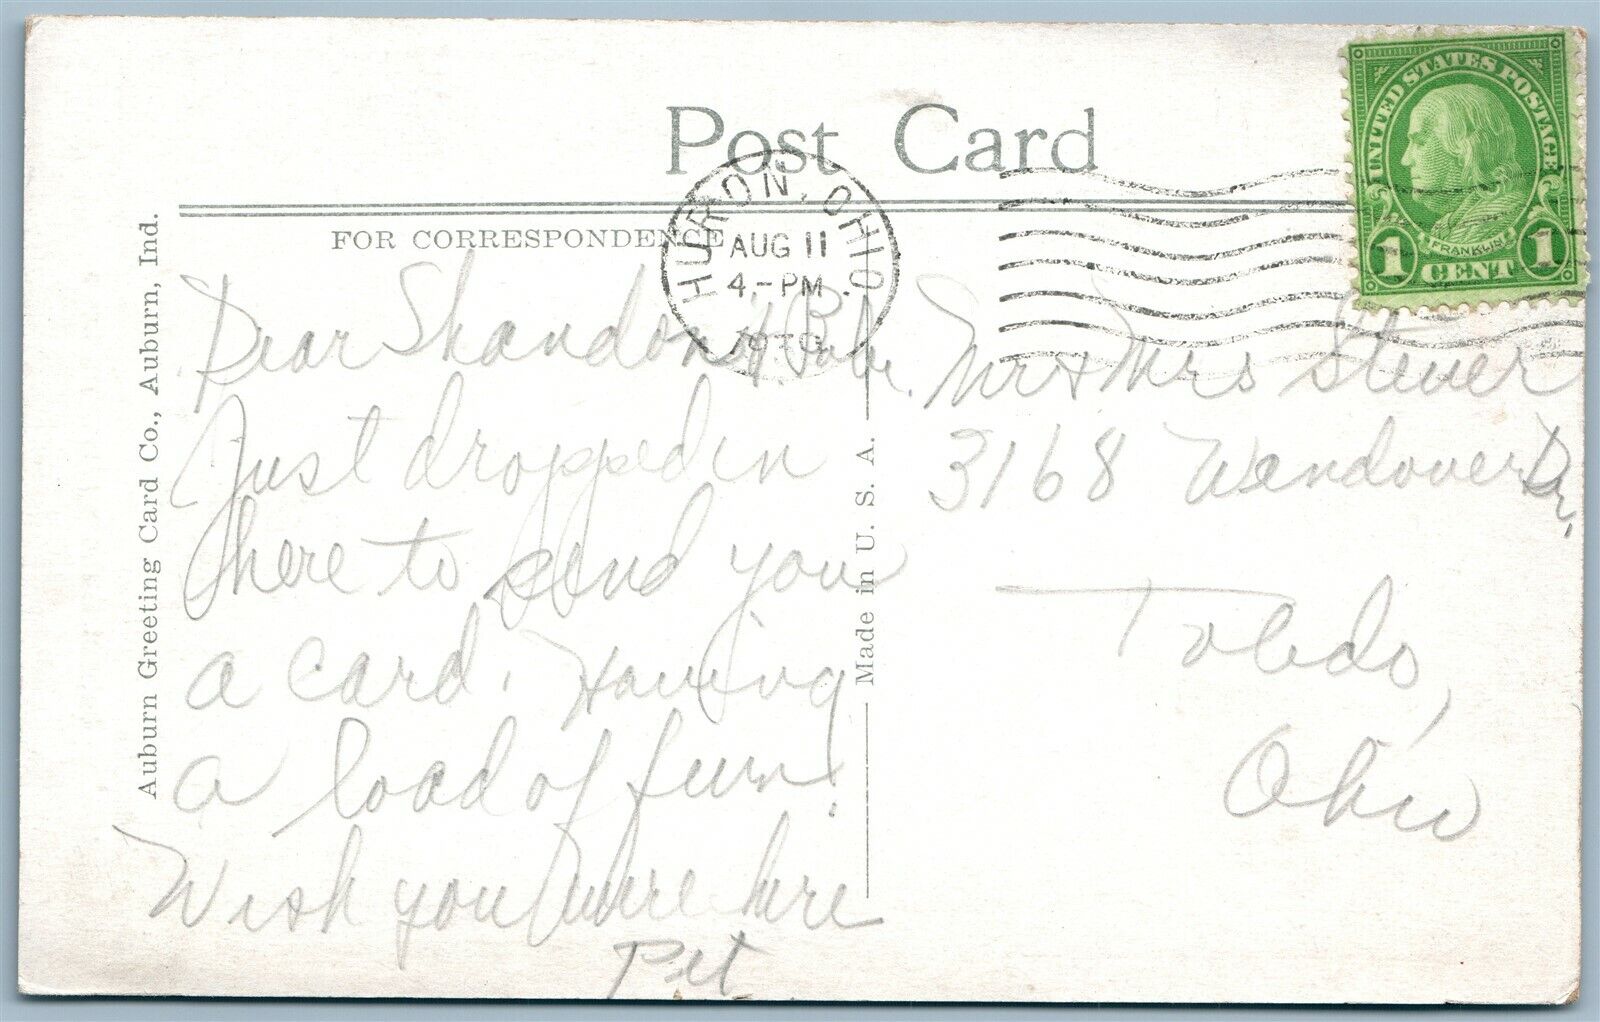 Post Card
FOR CORRESPONDENCE
HURON, OHIO
AUG 11
4-PM
UNITED STATES POSTAGE
FRANKLIN
1 CENT 1
Auburn Greeting Card Co., Auburn, Ind.
Made in U. S. A.
Dear Shandon & Bob.
Just dropped in
here to send you
a card. Having
a load of fun!
Wish you were here
Pet
Mr & Mrs Stever
3168 Wendover Dr,
Toledo,
Ohio